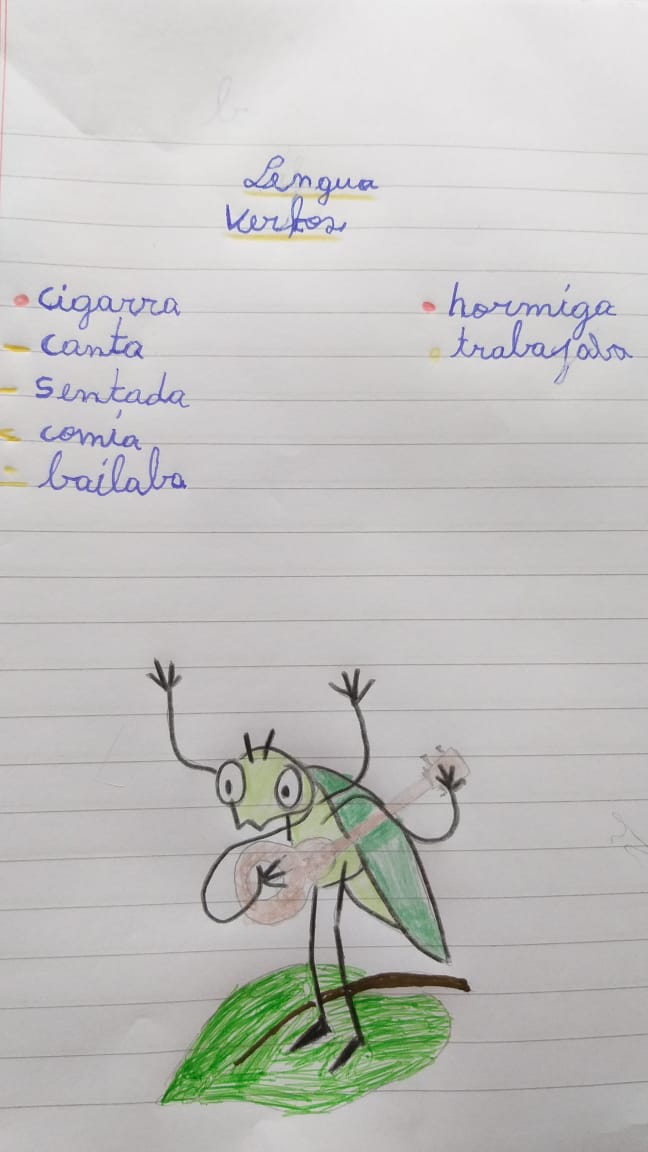 Lengua
Verbos
• cigarra
- canta
- sentada
- comía
- bailaba
• hormiga
trabajaba